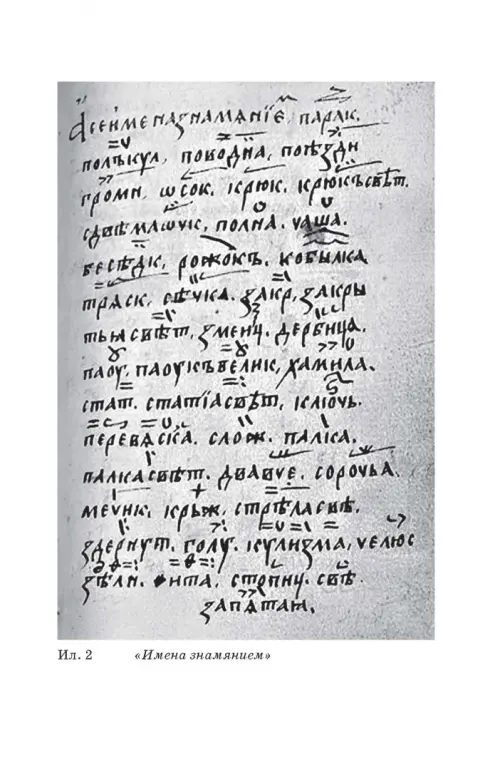 А се имена знамяніе, парак.
полъкул, поводна, поѣзди
громн, ѡсок. крюк. крюкъ свѣт.
сдвѣма чук, полна. чаша.
бесѣдк, рожокъ. кобылка
тряск, свѣчка. закр, закры
тыи свѣт, змеиц. дербица.
паоу, паоукъ велик, хамила.
стат. статіа свѣт, ключь.
перевяска. слож. палка.
палка свѣт. два в че. сорочья.
мечик. крыж. стрѣла свѣ.
здернут. голу. кулизма, челюс
дѣли. ѳита, стопиц. свѣ.
запятаи.
Ил. 2 «Имена знамянием»